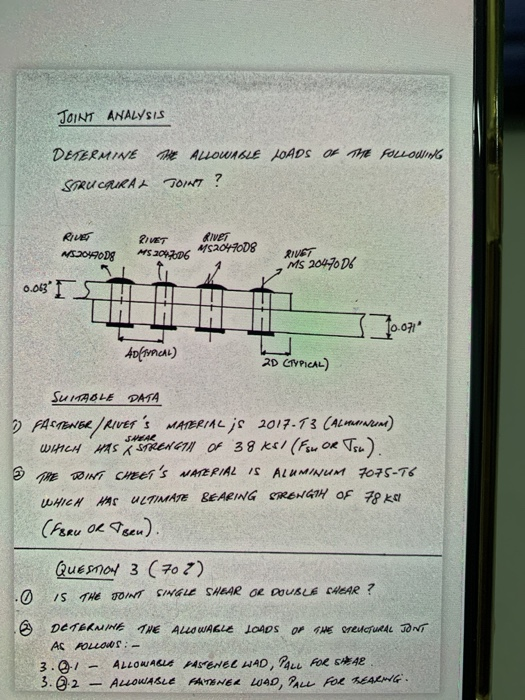 JOINT ANALYSIS
DETERMINE THE ALLOWABLE LOADS OF THE FOLLOWING
STRUCTURAL JOINT ?
RIVET
MS20470D8
RIVET
MS20470D6
RIVET
MS20470D8
RIVET
MS 20470D6
0.063"
0.071"
4D(TYPICAL)
2D (TYPICAL)
SUITABLE DATA
① FASTENER/RIVET'S MATERIAL IS 2017-T3 (ALUMINUM)
WHICH HAS SHEAR STRENGTH OF 38 KSI (FSU OR TSU).
② THE JOINT SHEET'S MATERIAL IS ALUMINUM 7075-T6
WHICH HAS ULTIMATE BEARING STRENGTH OF 78 KSI
(FBRU OR TBRU).
QUESTION 3 (70%)
① IS THE JOINT SINGLE SHEAR OR DOUBLE SHEAR ?
② DETERMINE THE ALLOWABLE LOADS OF THE STRUCTURAL JOINT
AS FOLLOWS:-
3.②.1 - ALLOWABLE FASTENER LOAD, PALL FOR SHEAR.
3.②.2 - ALLOWABLE FASTENER LOAD, PALL FOR BEARING.